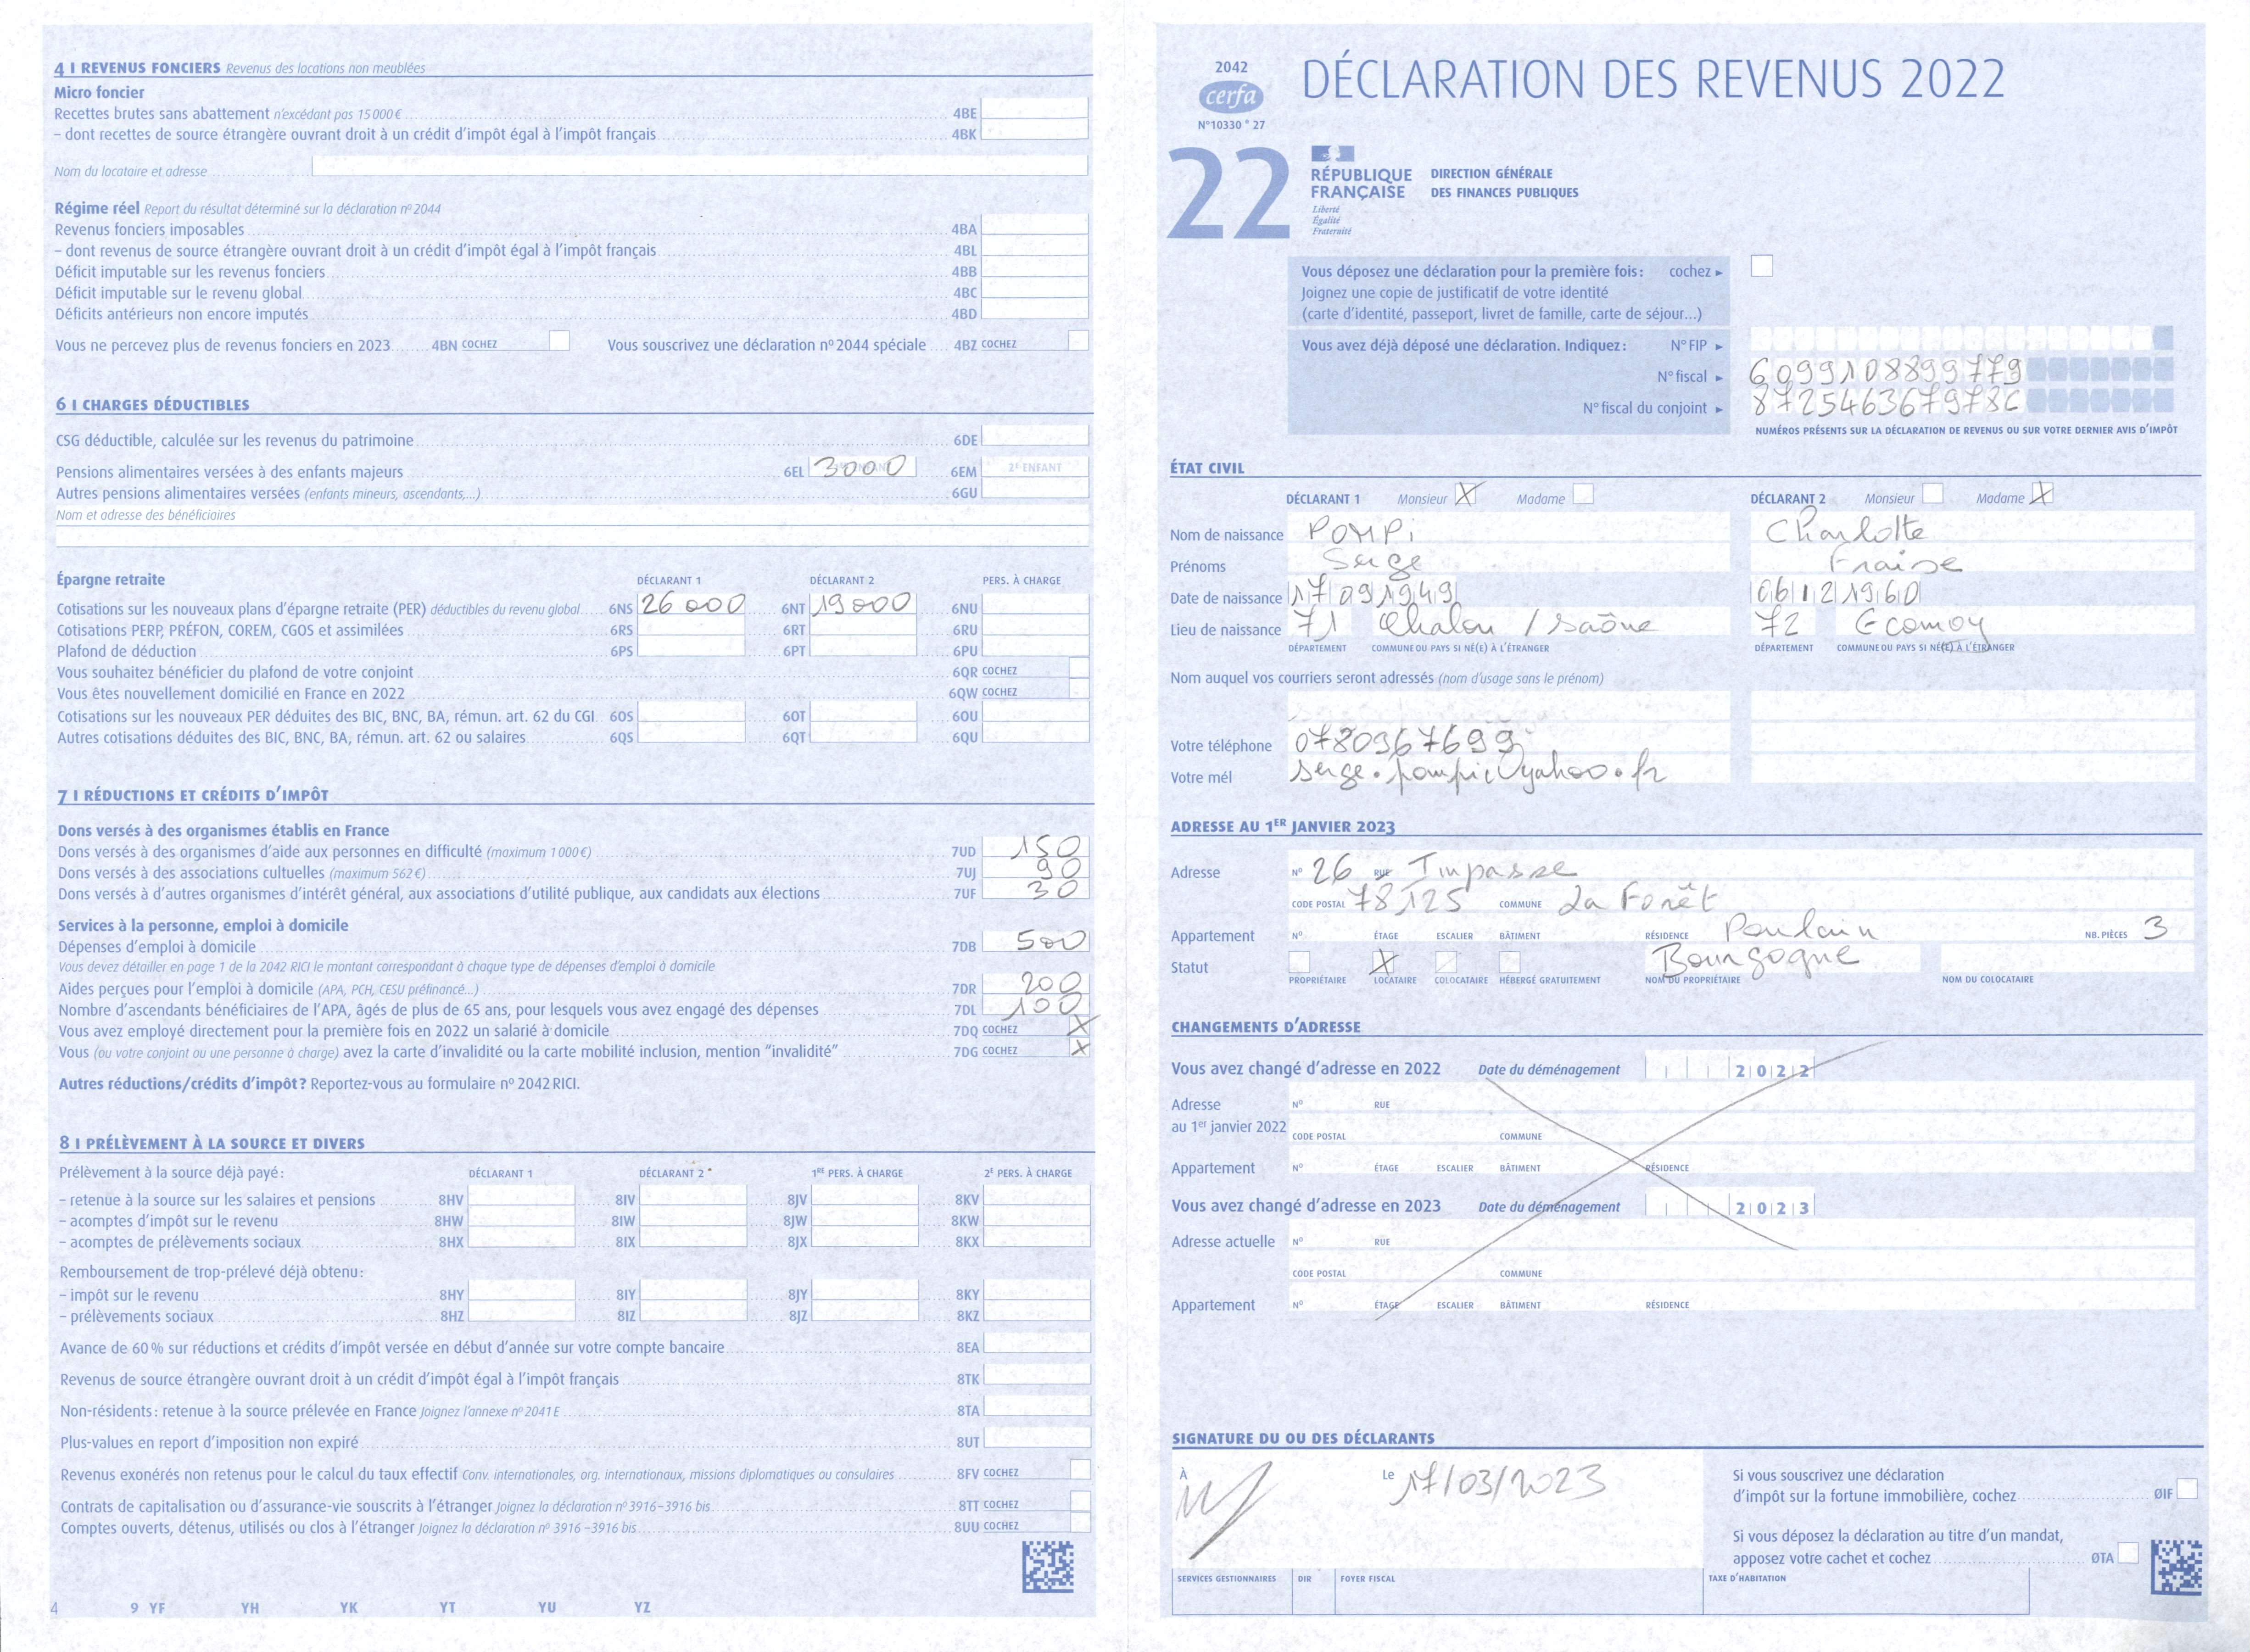 4 I REVENUS FONCIERS Revenus des locations non meublées
Micro foncier
Recettes brutes sans abattement n'excédant pas 15 000 € 4BE
– dont recettes de source étrangère ouvrant droit à un crédit d'impôt égal à l'impôt français 4BK
Nom du locataire et adresse
Régime réel Report du résultat déterminé sur la déclaration nº 2044
Revenus fonciers imposables 4BA
– dont revenus de source étrangère ouvrant droit à un crédit d'impôt égal à l'impôt français 4BL
Déficit imputable sur les revenus fonciers 4BB
Déficit imputable sur le revenu global 4BC
Déficits antérieurs non encore imputés 4BD
Vous ne percevez plus de revenus fonciers en 2023 4BN COCHEZ Vous souscrivez une déclaration nº 2044 spéciale 4BZ COCHEZ
6 I CHARGES DÉDUCTIBLES
CSG déductible, calculée sur les revenus du patrimoine 6DE
Pensions alimentaires versées à des enfants majeurs 6EL 3000 6EM 2E ENFANT
Autres pensions alimentaires versées (enfants mineurs, ascendants,...) 6GU
Nom et adresse des bénéficiaires
Épargne retraite DÉCLARANT 1 DÉCLARANT 2 PERS. À CHARGE
Cotisations sur les nouveaux plans d'épargne retraite (PER) déductibles du revenu global 6NS 26 000 6NT 19 000 6NU
Cotisations PERP, PRÉFON, COREM, CGOS et assimilées 6RS 6RT 6RU
Plafond de déduction 6PS 6PT 6PU
Vous souhaitez bénéficier du plafond de votre conjoint 6QR COCHEZ
Vous êtes nouvellement domicilié en France en 2022 6QW COCHEZ
Cotisations sur les nouveaux PER déduites des BIC, BNC, BA, rémun. art. 62 du CGI 6OS 6OT 6OU
Autres cotisations déduites des BIC, BNC, BA, rémun. art. 62 ou salaires 6QS 6QT 6QU
7 I RÉDUCTIONS ET CRÉDITS D'IMPÔT
Dons versés à des organismes établis en France
Dons versés à des organismes d'aide aux personnes en difficulté (maximum 1 000 €) 7UD 150
Dons versés à des associations cultuelles (maximum 562 €) 7UJ 90
Dons versés à d'autres organismes d'intérêt général, aux associations d'utilité publique, aux candidats aux élections 7UF 30
Services à la personne, emploi à domicile
Dépenses d'emploi à domicile 7DB 500
Vous devez détailler en page 1 de la 2042 RICI le montant correspondant à chaque type de dépenses d'emploi à domicile
Aides perçues pour l'emploi à domicile (APA, PCH, CESU préfinancé...) 7DR 200
Nombre d'ascendants bénéficiaires de l'APA, âgés de plus de 65 ans, pour lesquels vous avez engagé des dépenses 7DL 100
Vous avez employé directement pour la première fois en 2022 un salarié à domicile 7DQ COCHEZ X
Vous (ou votre conjoint ou une personne à charge) avez la carte d'invalidité ou la carte mobilité inclusion, mention "invalidité" 7DG COCHEZ X
Autres réductions/crédits d'impôt? Reportez-vous au formulaire nº 2042 RICI.
8 I PRÉLÈVEMENT À LA SOURCE ET DIVERS
Prélèvement à la source déjà payé: DÉCLARANT 1 DÉCLARANT 2 1RE PERS. À CHARGE 2E PERS. À CHARGE
– retenue à la source sur les salaires et pensions 8HV 8IV 8JV 8KV
– acomptes d'impôt sur le revenu 8HW 8IW 8JW 8KW
– acomptes de prélèvements sociaux 8HX 8IX 8JX 8KX
Remboursement de trop-prélevé déjà obtenu:
– impôt sur le revenu 8HY 8IY 8JY 8KY
– prélèvements sociaux 8HZ 8IZ 8JZ 8KZ
Avance de 60 % sur réductions et crédits d'impôt versée en début d'année sur votre compte bancaire 8EA
Revenus de source étrangère ouvrant droit à un crédit d'impôt égal à l'impôt français 8TK
Non-résidents: retenue à la source prélevée en France Joignez l'annexe nº 2041 E 8TA
Plus-values en report d'imposition non expiré 8UT
Revenus exonérés non retenus pour le calcul du taux effectif Conv. internationales, org. internationaux, missions diplomatiques ou consulaires 8FV COCHEZ
Contrats de capitalisation ou d'assurance-vie souscrits à l'étranger Joignez la déclaration nº 3916–3916 bis 8TT COCHEZ
Comptes ouverts, détenus, utilisés ou clos à l'étranger Joignez la déclaration nº 3916–3916 bis 8UU COCHEZ
4 9 YF YH YK YT YU YZ
2042 DÉCLARATION DES REVENUS 2022
cerfa
Nº10330 * 27
22
RÉPUBLIQUE FRANÇAISE
Liberté
Égalité
Fraternité
DIRECTION GÉNÉRALE
DES FINANCES PUBLIQUES
Vous déposez une déclaration pour la première fois: cochez ►
Joignez une copie de justificatif de votre identité
(carte d'identité, passeport, livret de famille, carte de séjour...)
Vous avez déjà déposé une déclaration. Indiquez: Nº FIP ►
Nº fiscal ► 6099108899779
Nº fiscal du conjoint ► 8725463679786
NUMÉROS PRÉSENTS SUR LA DÉCLARATION DE REVENUS OU SUR VOTRE DERNIER AVIS D'IMPÔT
ÉTAT CIVIL
DÉCLARANT 1 Monsieur X Madame DÉCLARANT 2 Monsieur Madame X
Nom de naissance POMPi Charlotte
Prénoms Serge Fraise
Date de naissance 17 09 1949 06 12 1960
Lieu de naissance 71 Chalon / Saône 72 Ecomoy
DÉPARTEMENT COMMUNE OU PAYS SI NÉ(E) À L'ÉTRANGER DÉPARTEMENT COMMUNE OU PAYS SI NÉ(E) À L'ÉTRANGER
Nom auquel vos courriers seront adressés (nom d'usage sans le prénom)
Votre téléphone 0780967699
Votre mél serge.pompi@yahoo.fr
ADRESSE AU 1ER JANVIER 2023
Adresse Nº 26 RUE Impasse
CODE POSTAL 78125 COMMUNE La Forêt
Appartement Nº ÉTAGE ESCALIER BÂTIMENT RÉSIDENCE Poulain NB. PIÈCES 3
Statut X Bourgogne
PROPRIÉTAIRE LOCATAIRE COLOCATAIRE HÉBERGÉ GRATUITEMENT NOM DU PROPRIÉTAIRE NOM DU COLOCATAIRE
CHANGEMENTS D'ADRESSE
Vous avez changé d'adresse en 2022 Date du déménagement 2022
Adresse Nº RUE
au 1er janvier 2022 CODE POSTAL COMMUNE
Appartement Nº ÉTAGE ESCALIER BÂTIMENT RÉSIDENCE
Vous avez changé d'adresse en 2023 Date du déménagement 2023
Adresse actuelle Nº RUE
CODE POSTAL COMMUNE
Appartement Nº ÉTAGE ESCALIER BÂTIMENT RÉSIDENCE
SIGNATURE DU OU DES DÉCLARANTS
À Le 17/03/2023
Si vous souscrivez une déclaration
d'impôt sur la fortune immobilière, cochez ØIF
Si vous déposez la déclaration au titre d'un mandat,
apposez votre cachet et cochez ØTA
SERVICES GESTIONNAIRES DIR FOYER FISCAL TAXE D'HABITATION